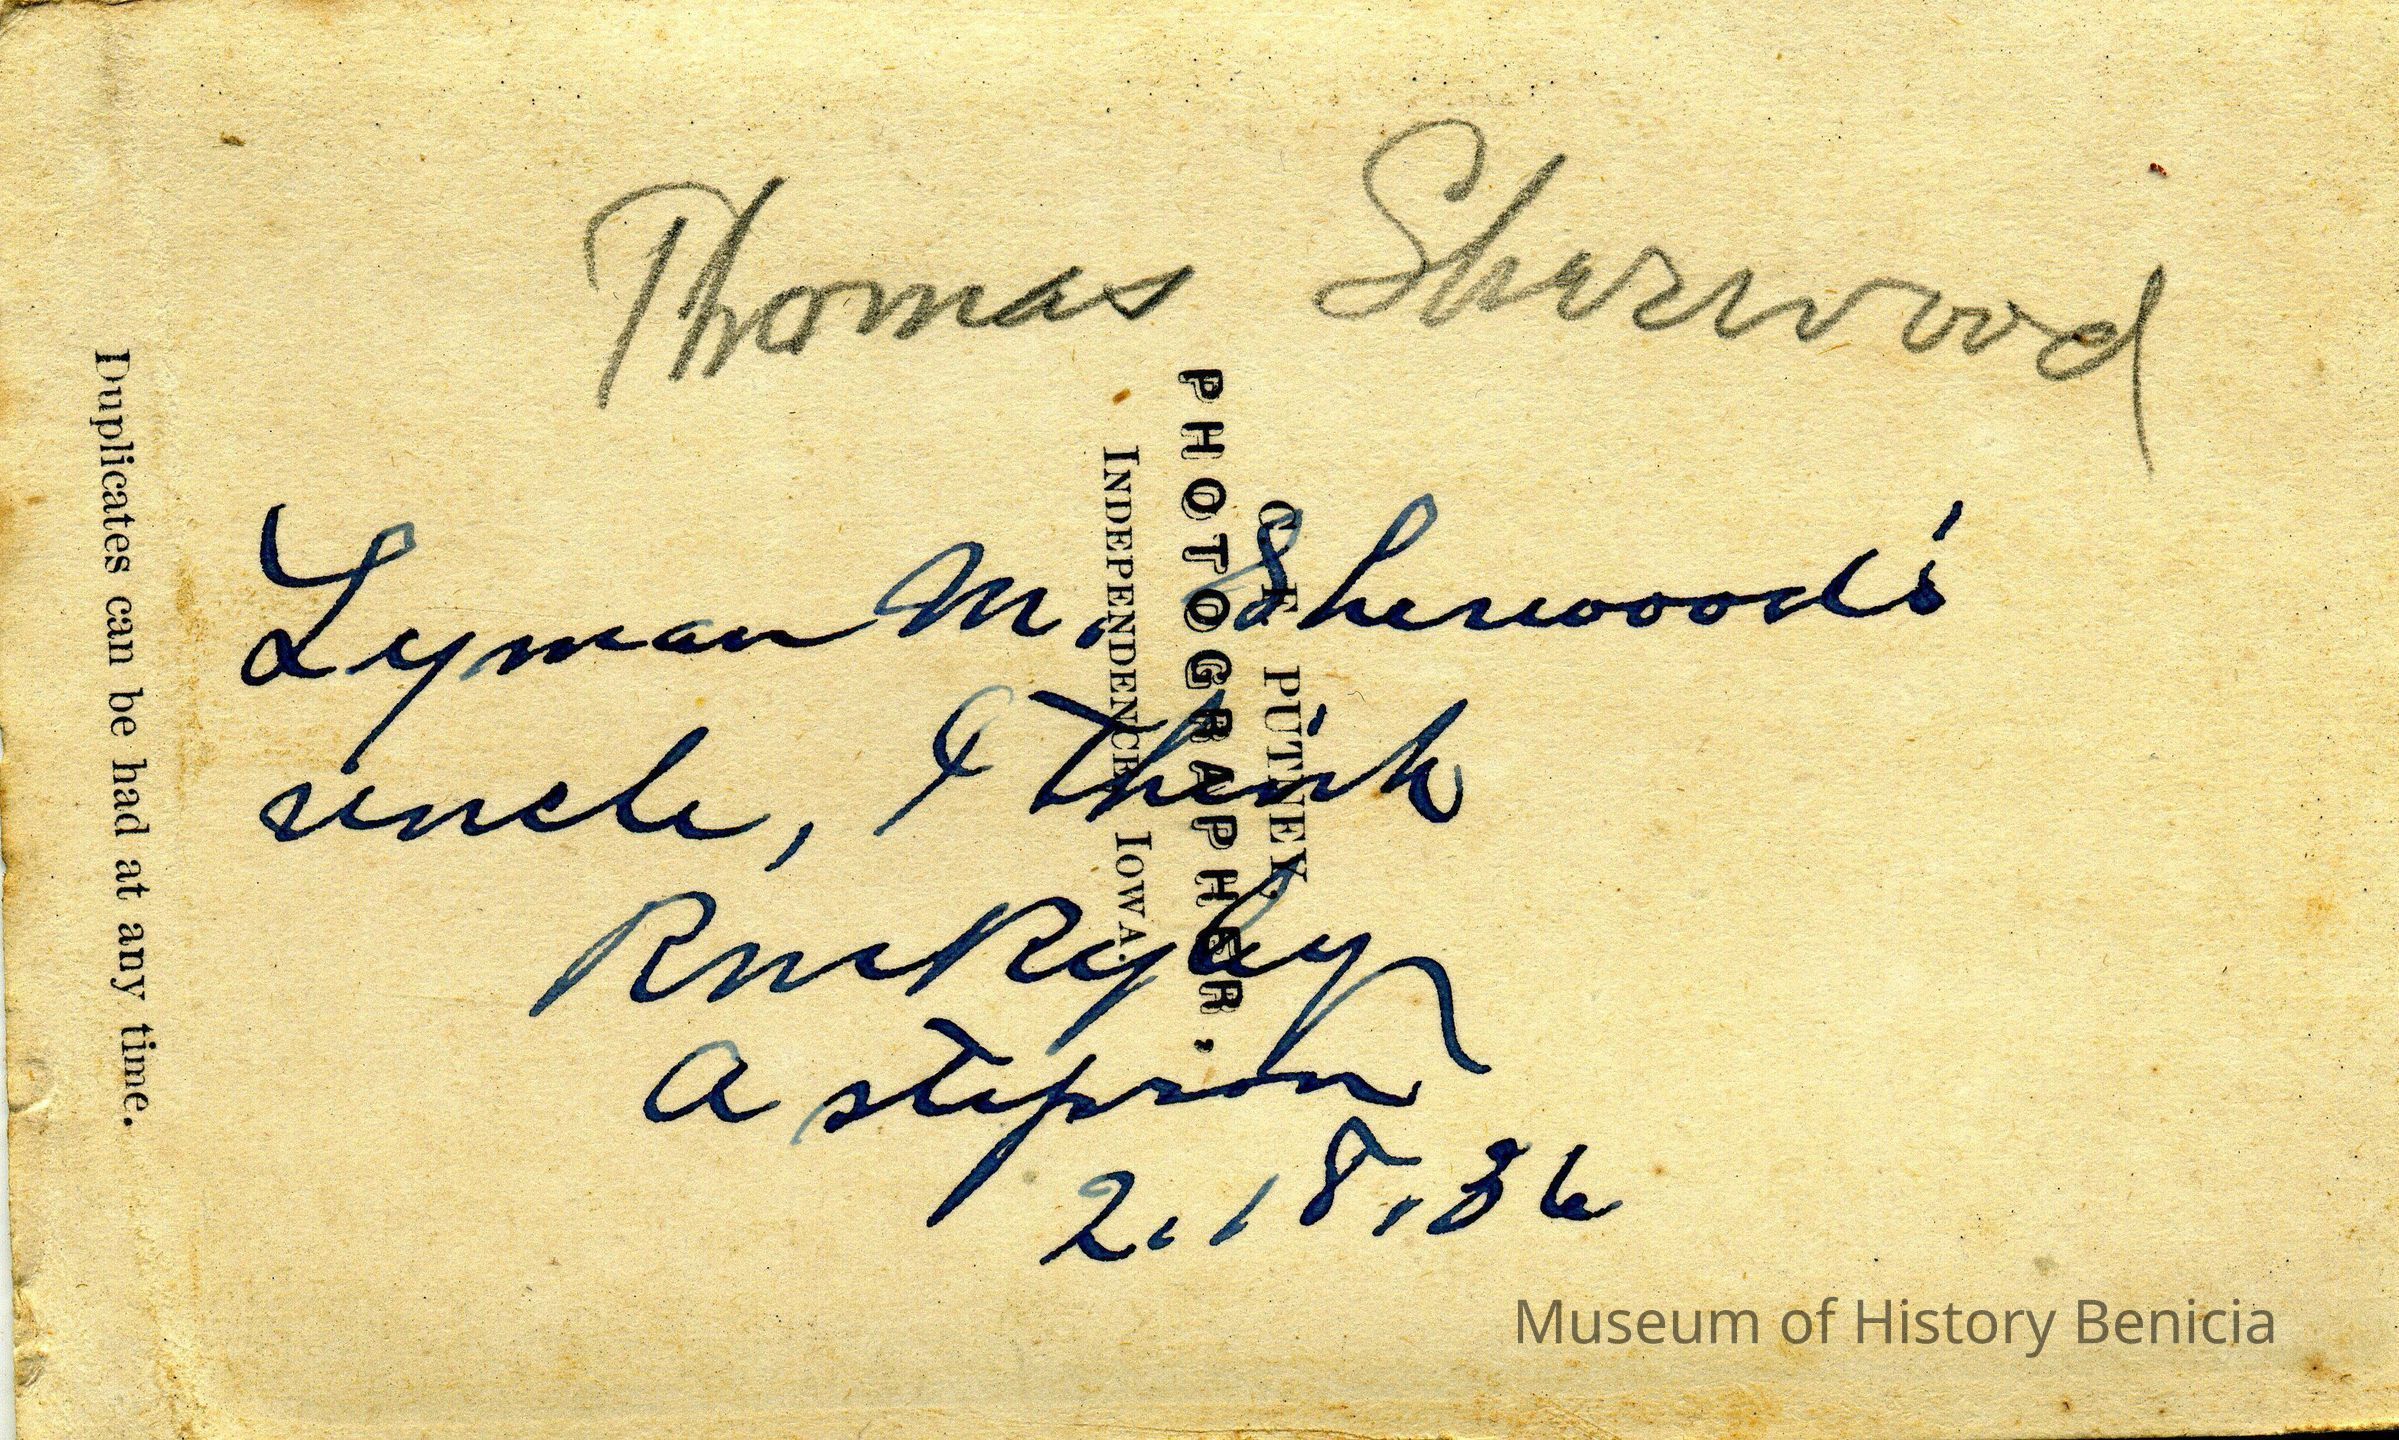 Thomas Sherwood
Lyman M. Sherwood's
uncle, I Think
A stepson
2.18.36
C. E. PUTNEY,
PHOTOGRAPHER,
INDEPENDENCE, IOWA.
Duplicates can be had at any time.
Museum of History Benicia